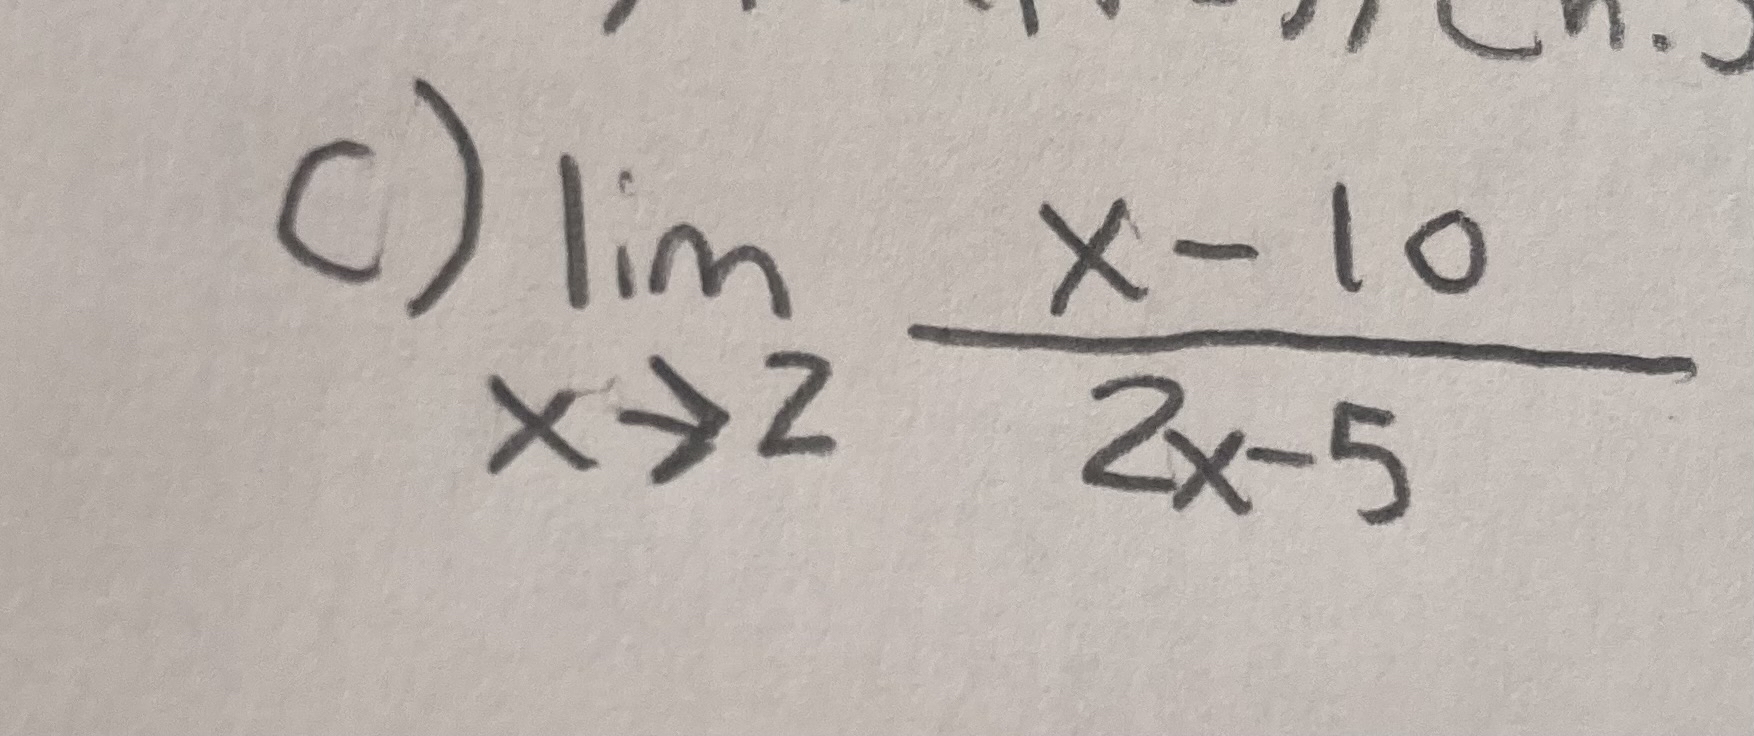 c) lim x→2 x - 10 / 2x-5